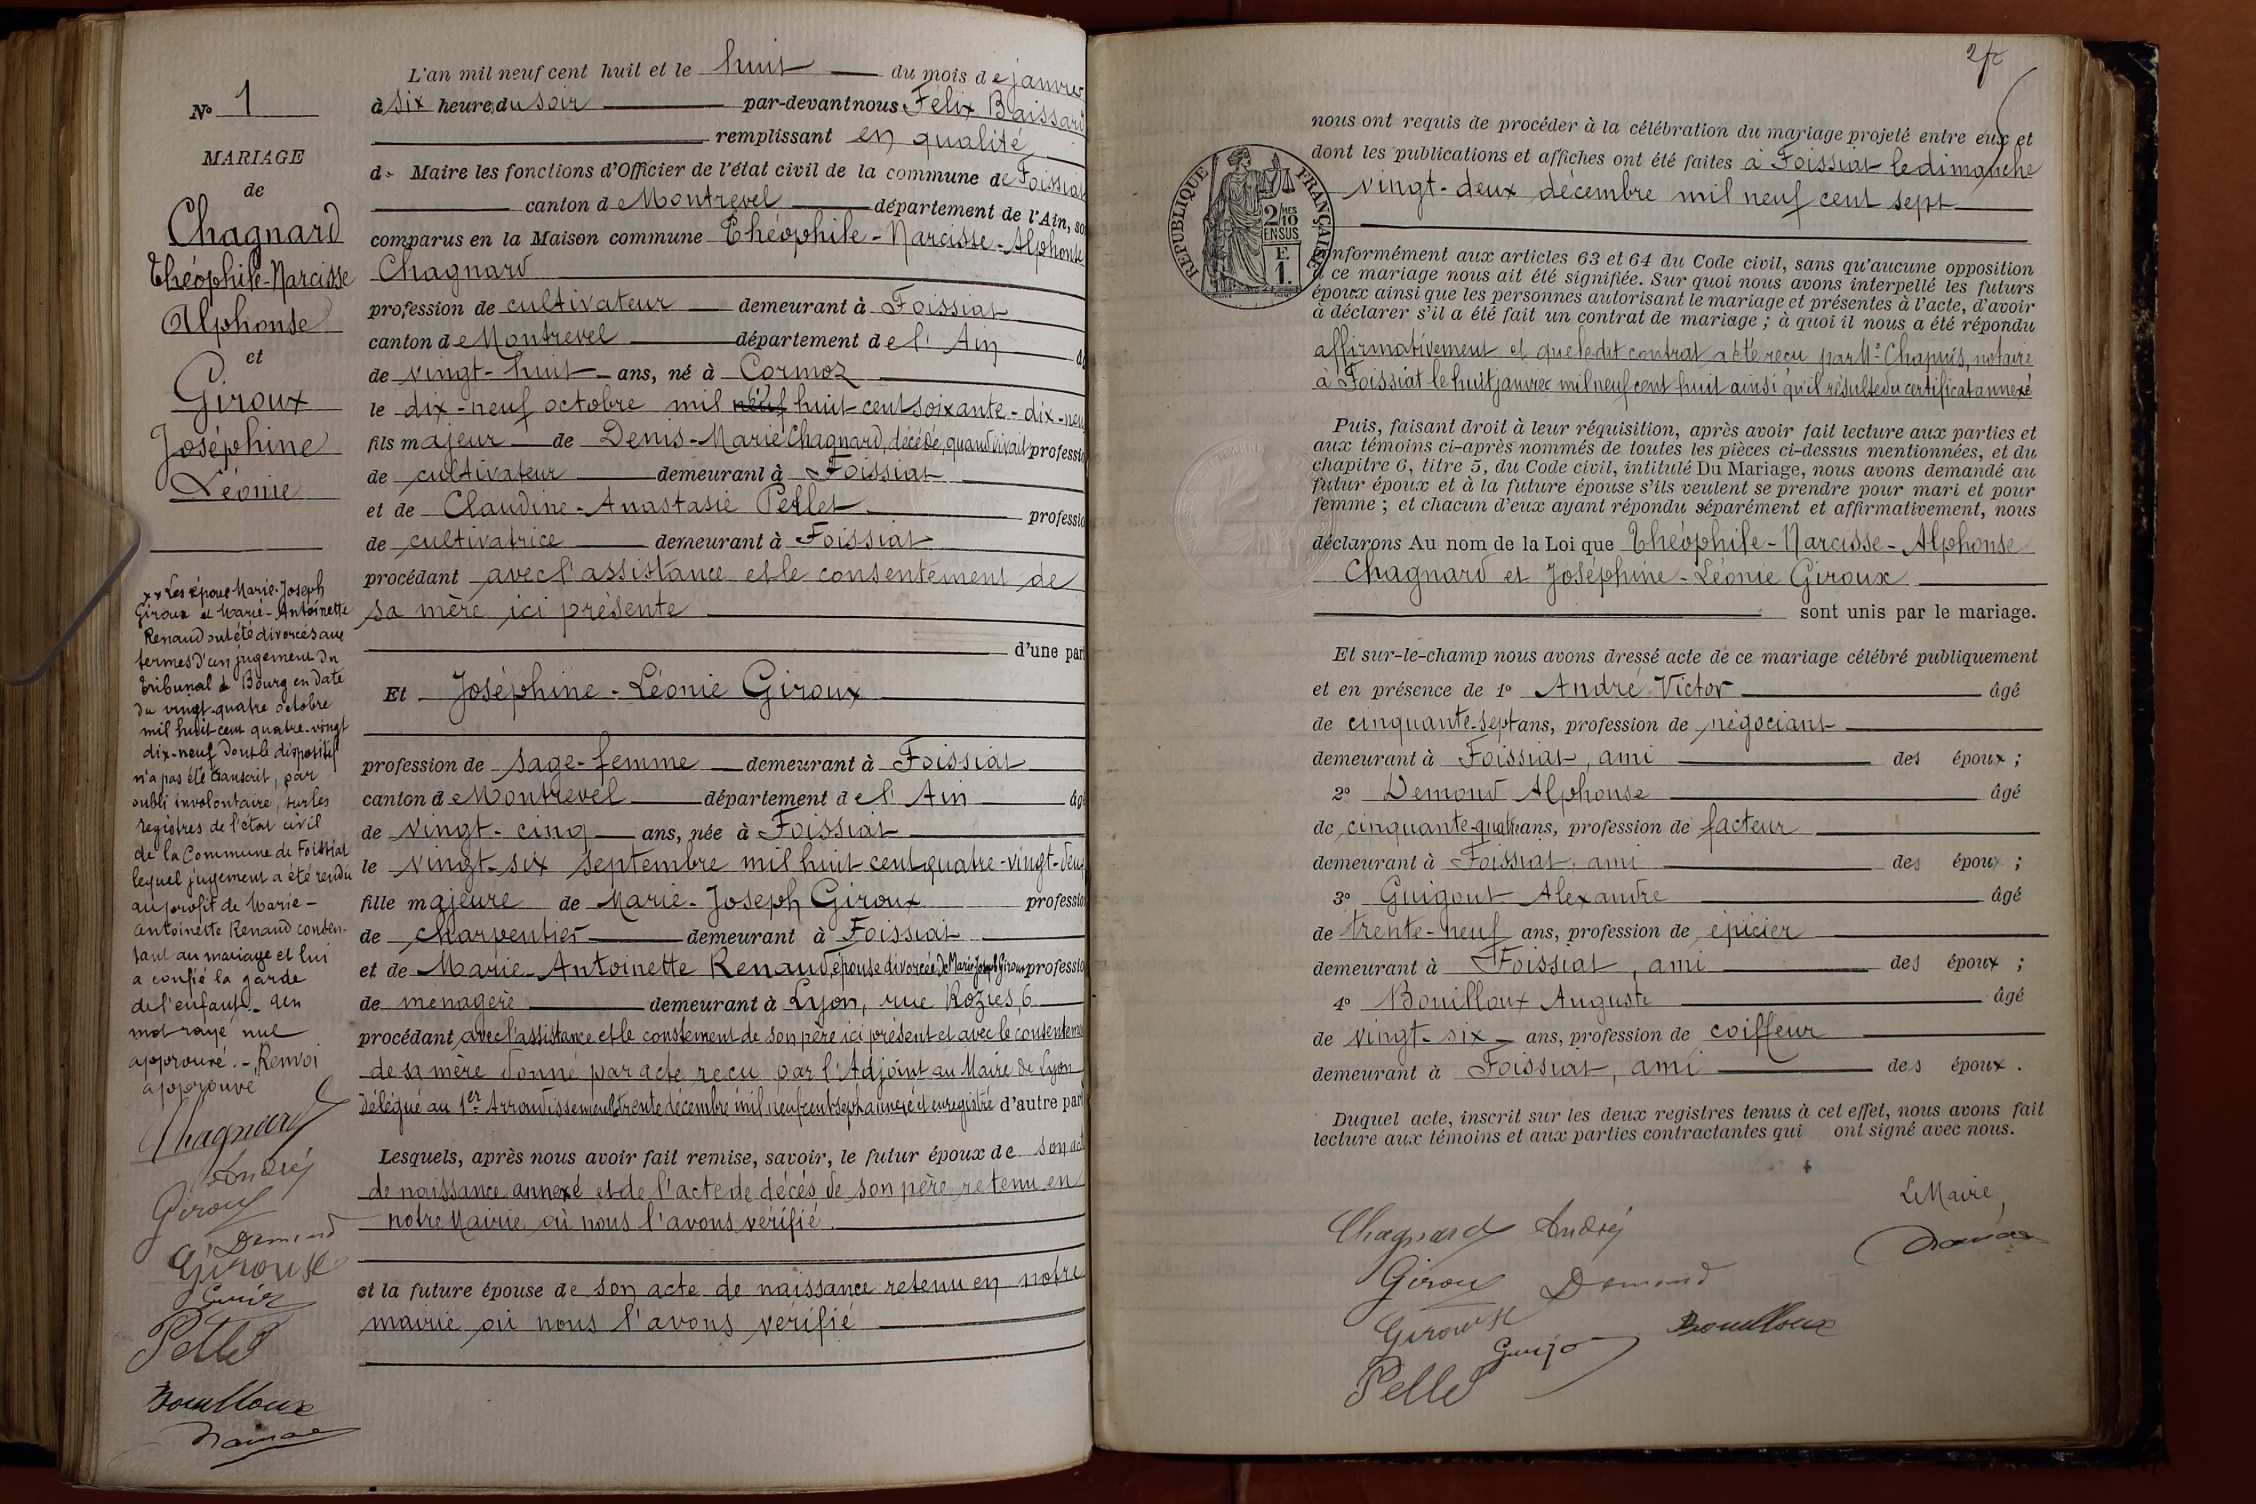 N° 1
MARIAGE
de
Chagnard
Théophile-Narcisse
Alphonse
et
Giroux
Joséphine
Léonie
xx Les époux Marie-Joseph
Giroux et Marie-Antoinette
Renaud ont été divorcés aux
termes d'un jugement du
tribunal de Bourg en date
du vingt-quatre octobre
mil huit cent quatre-vingt
dix-neuf dont le dispositif
n'a pas été transcrit, par
oubli involontaire, sur les
registres de l'état civil
de la Commune de Foissiat
lequel jugement a été rendu
au profit de Marie-
Antoinette Renaud consen-
tant au mariage et lui
a confié la garde
de l'enfant. Un
mot rayé nul
approuvé. - Renvoi
approuvé
Chagnard
André
Giroux
Demond
Giroux
Pelle
Bouilloux
L'an mil neuf cent huit et le huit du mois de janvier
à six heures du soir par-devant nous Félix Baissard
remplissant en qualité
de Maire les fonctions d'Officier de l'état civil de la commune de Foissiat
canton de Montrevel département de l'Ain, so
comparus en la Maison commune Théophile-Narcisse-Alphonse
Chagnard
profession de cultivateur demeurant à Foissiat
canton de Montrevel département de l'Ain
de vingt-huit ans, né à Cormoz
le dix-neuf octobre mil neuf huit cent soixante-dix-neuf
fils majeur de Denis-Marie Chagnard, décédé, quand vivait professio
de cultivateur demeurant à Foissiat
et de Claudine-Anastasie Pellet professio
de cultivatrice demeurant à Foissiat
procédant avec l'assistance et le consentement de
sa mère ici présente
d'une part
Et Joséphine-Léonie Giroux
profession de sage-femme demeurant à Foissiat
canton de Montrevel département de l'Ain âgé
de vingt-cinq ans, née à Foissiat
le vingt-six septembre mil huit cent quatre-vingt-deux
fille majeure de Marie-Joseph Giroux profession
de charpentier demeurant à Foissiat
et de Marie-Antoinette Renaud, épouse divorcée de Marie Joseph Giroux professio
de ménagère demeurant à Lyon, rue Rozier, 6
procédant avec l'assistance et le constement de son père ici présent et avec le consenteme
de sa mère donné par acte reçu par l'Adjoint au Maire de Lyon
délégué au 1er Arrondissement trente décembre mil neuf cent sept annexé et enregistré d'autre part
Lesquels, après nous avoir fait remise, savoir, le futur époux de son act
de naissance annexé et de l'acte de décès de son père retenu en
notre Mairie où nous l'avons vérifié.
et la future épouse de son acte de naissance retenu en notre
mairie où nous l'avons vérifié
nous ont requis de procéder à la célébration du mariage projeté entre eux et
dont les publications et affiches ont été faites à Foissiat le dimanche
vingt-deux décembre mil neuf cent sept
RÉPUBLIQUE FRANÇAISE
2/10 MES
EN SUS
F.
1.
onformément aux articles 63 et 64 du Code civil, sans qu'aucune opposition
à ce mariage nous ait été signifiée. Sur quoi nous avons interpellé les futurs
époux ainsi que les personnes autorisant le mariage et présentes à l'acte, d'avoir
à déclarer s'il a été fait un contrat de mariage ; à quoi il nous a été répondu
affirmativement et que ledit contrat a été reçu par Me Chapuis, notaire
à Foissiat le huit janvier mil neuf cent huit ainsi qu'il résulte du certificat annexé
Puis, faisant droit à leur réquisition, après avoir fait lecture aux parties et
aux témoins ci-après nommés de toutes les pièces ci-dessus mentionnées, et du
chapitre 6, titre 5, du Code civil, intitulé Du Mariage, nous avons demandé au
futur époux et à la future épouse s'ils veulent se prendre pour mari et pour
femme ; et chacun d'eux ayant répondu séparément et affirmativement, nous
déclarons Au nom de la Loi que Théophile-Narcisse-Alphonse
Chagnard et Joséphine-Léonie Giroux
sont unis par le mariage.
Et sur-le-champ nous avons dressé acte de ce mariage célébré publiquement
et en présence de 1° André Victor âgé
de cinquante-sept ans, profession de négociant
demeurant à Foissiat, ami des époux ;
2° Demond Alphonse âgé
de cinquante-quatre ans, profession de facteur
demeurant à Foissiat, ami des époux ;
3° Guigout Alexandre âgé
de trente-neuf ans, profession de épicier
demeurant à Foissiat, ami des époux ;
4° Bouilloux Auguste âgé
de vingt-six ans, profession de coiffeur
demeurant à Foissiat, ami des époux.
Duquel acte, inscrit sur les deux registres tenus à cet effet, nous avons fait
lecture aux témoins et aux parties contractantes qui ont signé avec nous.
Le Maire
Chagnard André
Giroux Demond
Giroux Bouilloux
Pelle